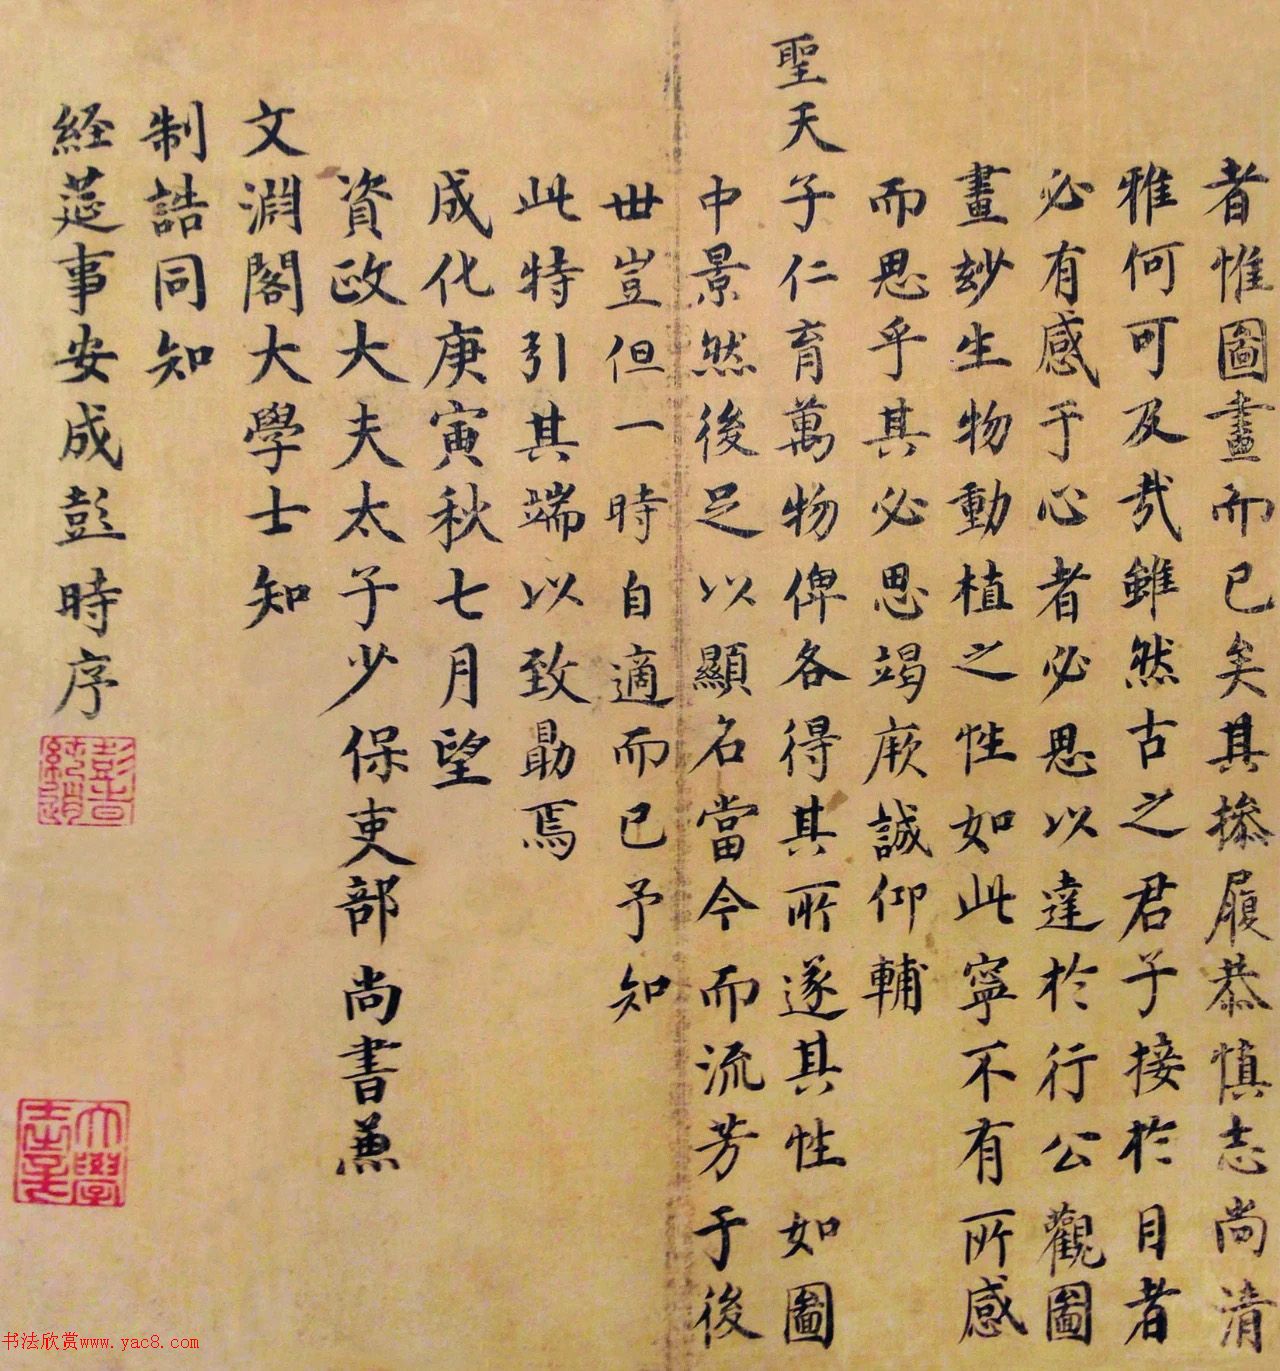 者惟圖畫而已矣其操履恭慎志尚清
雅何可及哉雖然古之君子接於目者
必有感于心者必思以達於行公觀圖
畫玅生物動植之性如此寧不有所感
而思乎其必思竭厥誠仰輔
聖天子仁育萬物俾各得其所遂其性如圖
中景然後足以顯名當今而流芳于後
世豈但一時自適而已予知
此特引其端以致勗焉
成化庚寅秋七月望
資政大夫太子少保吏部尚書兼
文淵閣大學士知
制誥同知
経莚事安成彭時序
彭時純道
大學士章
书法欣赏www.yac8.com